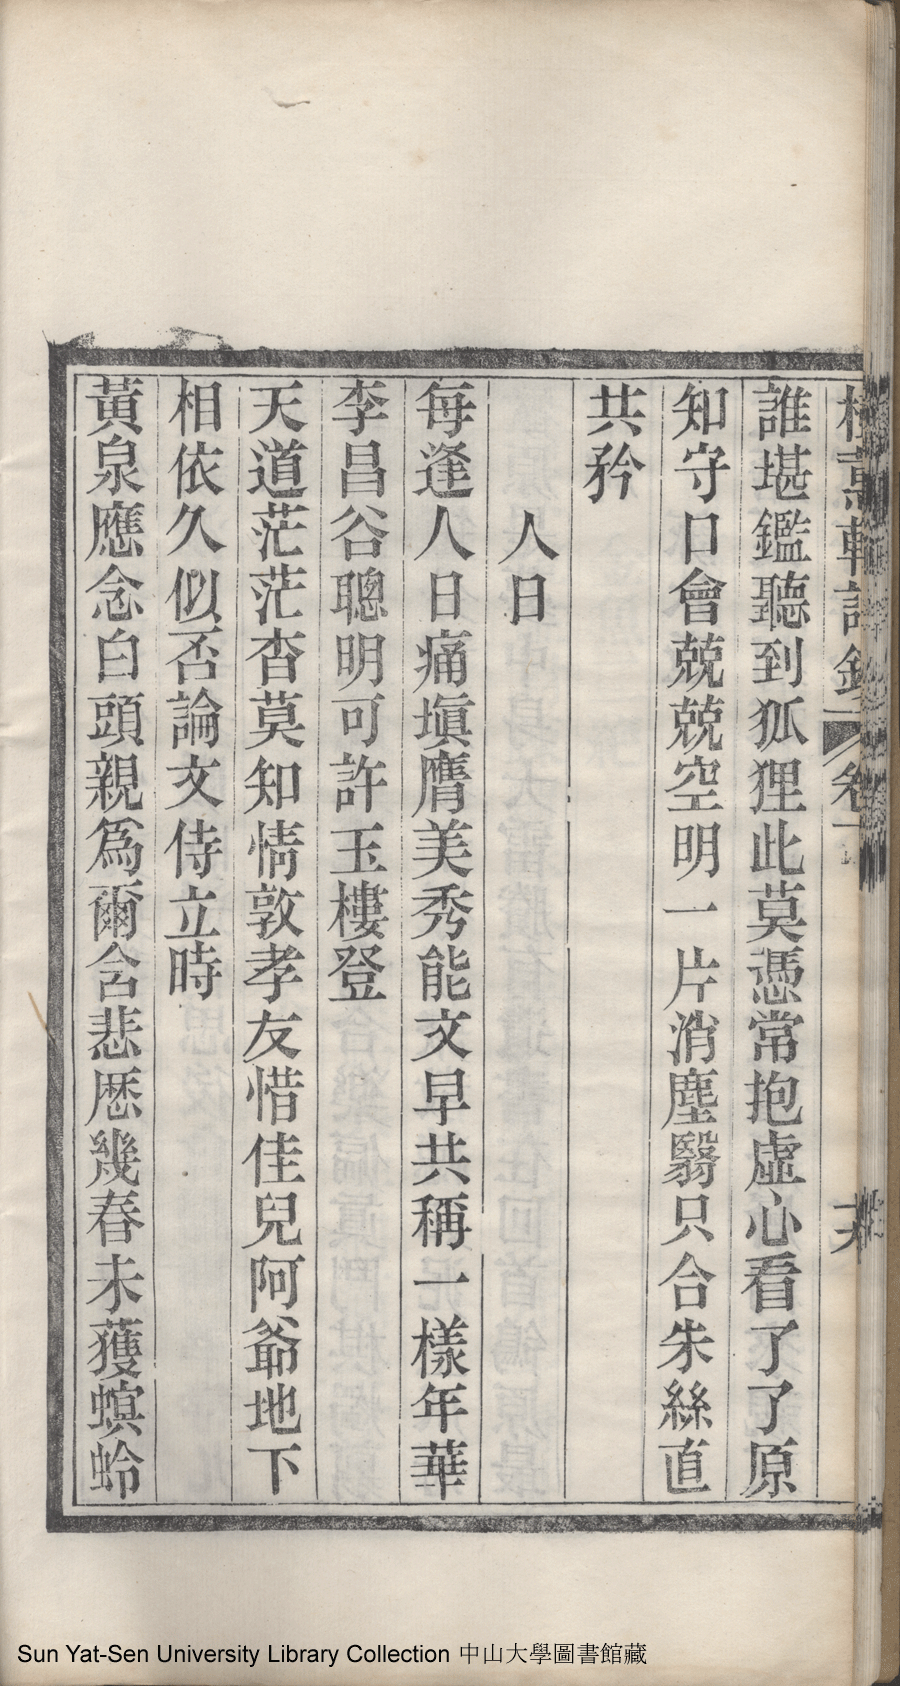 誰堪鑑聽到狐狸此莫憑常抱虛心看了了原
知守口會兢兢空明一片消塵翳只合朱絲直
共矜
人日
每逢人日痛塡膺美秀能文早共稱一樣年華
李昌谷聰明可許玉樓登
天道茫茫杳莫知情敦孝友惜佳兒阿爺地下
相依久似否論文侍立時
黃泉應念白頭親爲爾含悲歷幾春未獲螟蛉
Sun Yat-Sen University Library Collection 中山大學圖書館藏